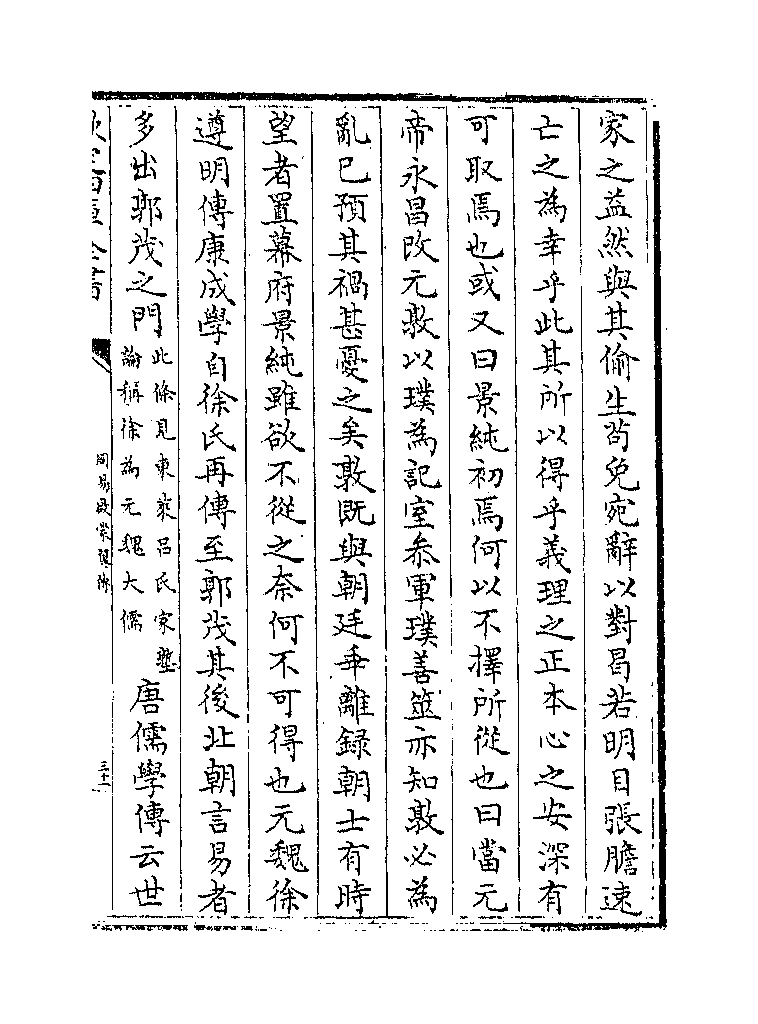 家之益然與其偷生苟免宛辭以對曷若明目張膽速
亡之為幸乎此其所以得乎義理之正本心之安深有
可取焉也或又曰景純初焉何以不擇所從也曰當元
帝永昌改元敦以璞為記室叅軍璞善筮亦知敦必為
亂巳預其禍甚憂之矣敦既與朝廷乖離録朝士有時
望者置幕府景純雖欲不從之奈何不可得也元魏徐
遵明傳康成學自徐氏再傳至郭茂其後北朝言易者
多出郭茂之門此條見東萊呂氏家塾
論稱徐為元魏大儒
唐儒學傳云世
欽定四庫全書
周易啟蒙翼傳
三十一